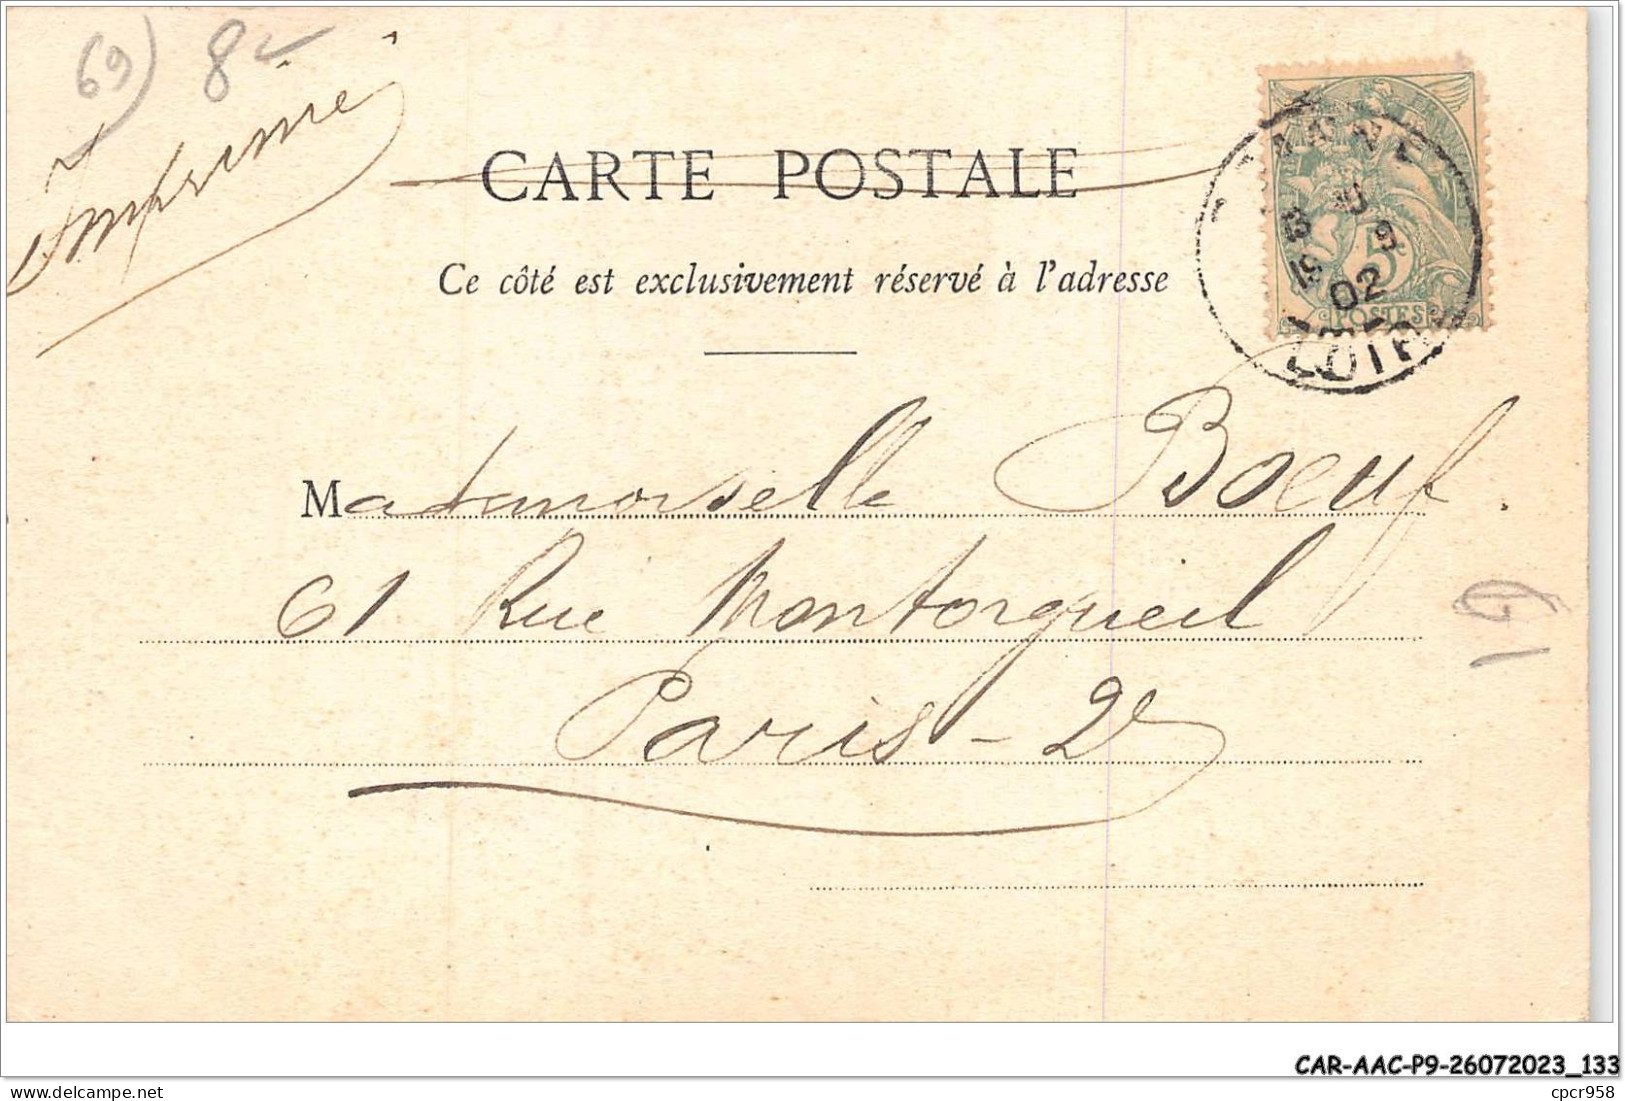 69) 8
Imprimé
CARTE POSTALE
Ce côté est exclusivement réservé à l'adresse
5c
POSTES
02
LOIRE
Mademoiselle Boeuf.
61 Rue Montorgueil
Paris - 2e
CAR-AAC-P9-26072023_133
cpcr958